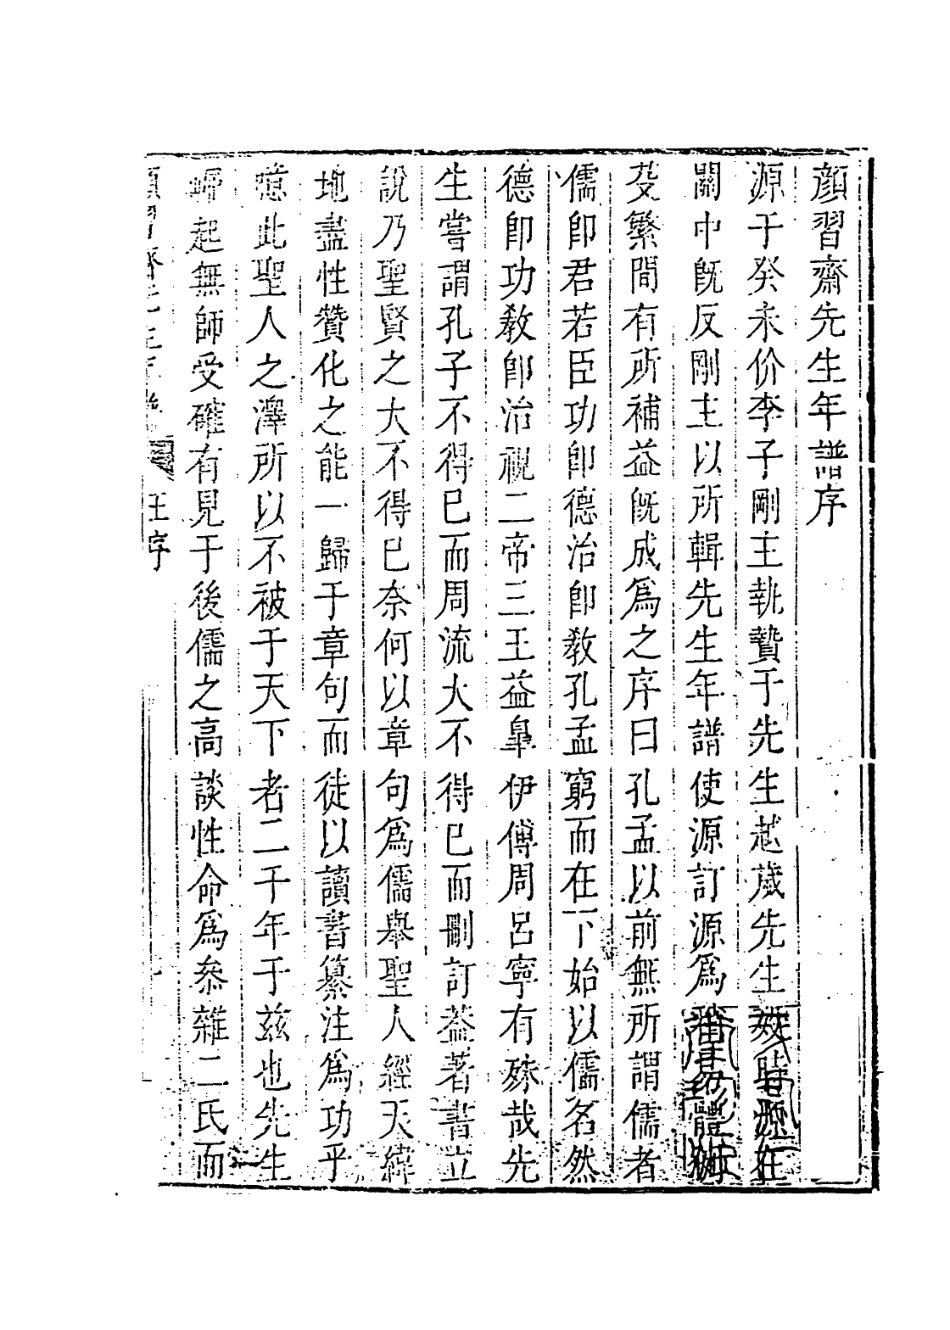 顏習齋先生年譜序
源于癸未价李子剛主執贄于先生越歲先生歿時源在
關中旣反剛主以所輯先生年譜使源訂源爲易體例
芟繁間有所補益旣成爲之序曰孔孟以前無所謂儒者
儒卽君若臣功卽德治卽教孔孟窮而在下始以儒名然
德卽功教卽治視二帝三王益臯伊傅周呂寧有殊哉先
生嘗謂孔子不得已而周流大不得已而刪訂葢著書立
說乃聖賢之大不得已奈何以章句爲儒舉聖人經天緯
地盡性贊化之能一歸于章句而徒以讀書纂注爲功乎
噫此聖人之澤所以不被于天下者二千年于兹也先生
崛起無師受確有見于後儒之高談性命爲叅雜二氏而
王序